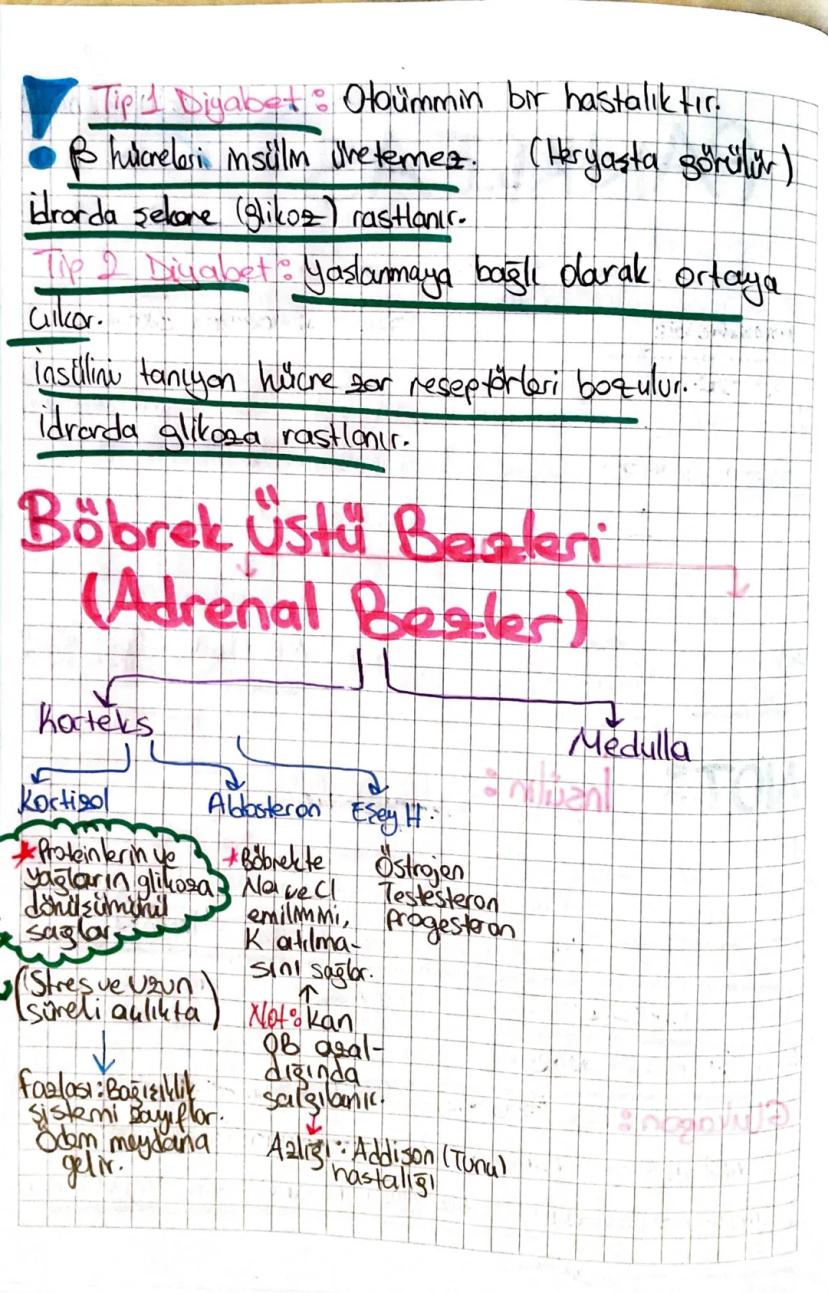 Tip 1 Diyabet: Otoümmin bir hastalıktır.
β hücreleri insülin üretemez. (Her yaşta görülür)
idrarda şekere (glikoz) rastlanır.
Tip 2 Diyabet: yaşlanmaya bağlı olarak ortaya
çıkar.
insülini tanıyan hücre zar reseptörleri bozulur.
idrarda glikoza rastlanır.
Böbrek Üstü Bezleri
(Adrenal Bezler)
Korteks
Medulla
Kortizol
Aldosteron
Eşey H.
*Proteinlerin ve
yağların glikoza
dönüşümünü
sağlar.
(Stres ve uzun
süreli açlıkta)
fazlası: Bağışıklık
sistemi zayıflar.
Ödem meydana
gelir.
*Böbrekte
Na ve Cl
emilimini,
K atılma-
sını sağlar.
Not: kan
OB azal-
dığında
salgılanır.
Azlığı: Addison (Tunç)
hastalığı
Östrojen
Testesteron
progesteron
insülin:
Glukagon: